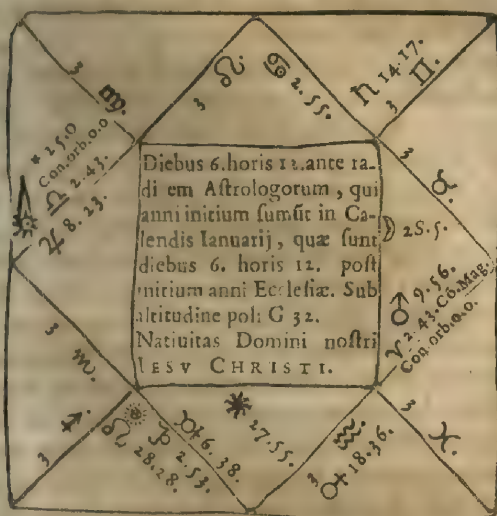 3 ♍.
3 ♌
♋ 2.55.
♄ 14.17.
3 ♊.
* 25.0
Con.orb.o.o
♎ 2.43.
♃ 8. 23.
Diebus 6.horis 12.ante ra-
di em Aſtrologorum , qui
anni initium ſumſit in Ca-
lendis Ianuarij , quæ ſunt
diebus 6. horis 12. poſt
initium anni Eccleſiæ. Sub
altitudine poli G 32.
Natiuitas Domini noſtri
IESV CHRISTI.
3 ♉.
☽ 28.5.
♂ 9.56.
♈ 2.43.Cō.Mag.
Con.orb.o.o.
3 ♏.
3 ♐.
28.28.
♑ 2.53.
6.38.
27.55.
3 ♒.
♀ 18.36.
3 ♓.